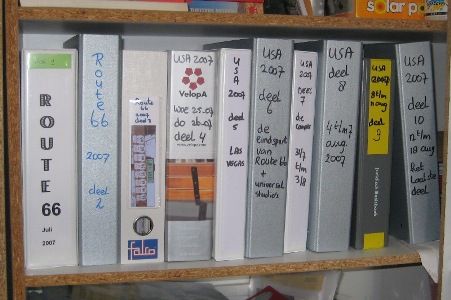 solar po
deel 1
ROUTE
66
Juli
2007
Route
66
2007
deel
2
Route
66
2007 deel 3
falk
USA 2007
VelopA
WOE 25.07
do 26.07
deel 4
USA
2007
deel
5
LAS
VEGAS
USA
2007
deel
6
de
eindspurt
van
Route 66
+
universal
studio's
USA
2007
deel
7
de
camper
3/7 t/m
3/8
USA
deel
8
4 t/m 7
aug
2007
USA
2007
8 t/m
11 aug
deel
9
USA
2007
deel
10
12 t/m
18 aug
het
laatste
deel